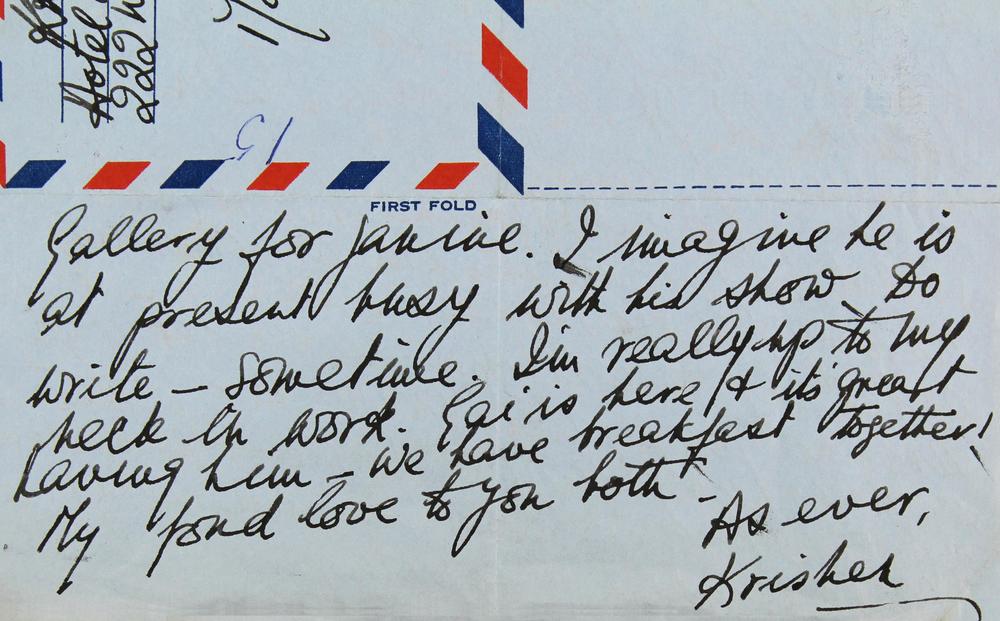 Hotel
222
15
FIRST FOLD
Gallery for Janine. I imagine he is
at present busy with his show. Do
write – sometime. I'm really up to my
neck in work. Gai is here & it's great
having him – we have breakfast together!
My fond love to you both –
As ever,
Krishen